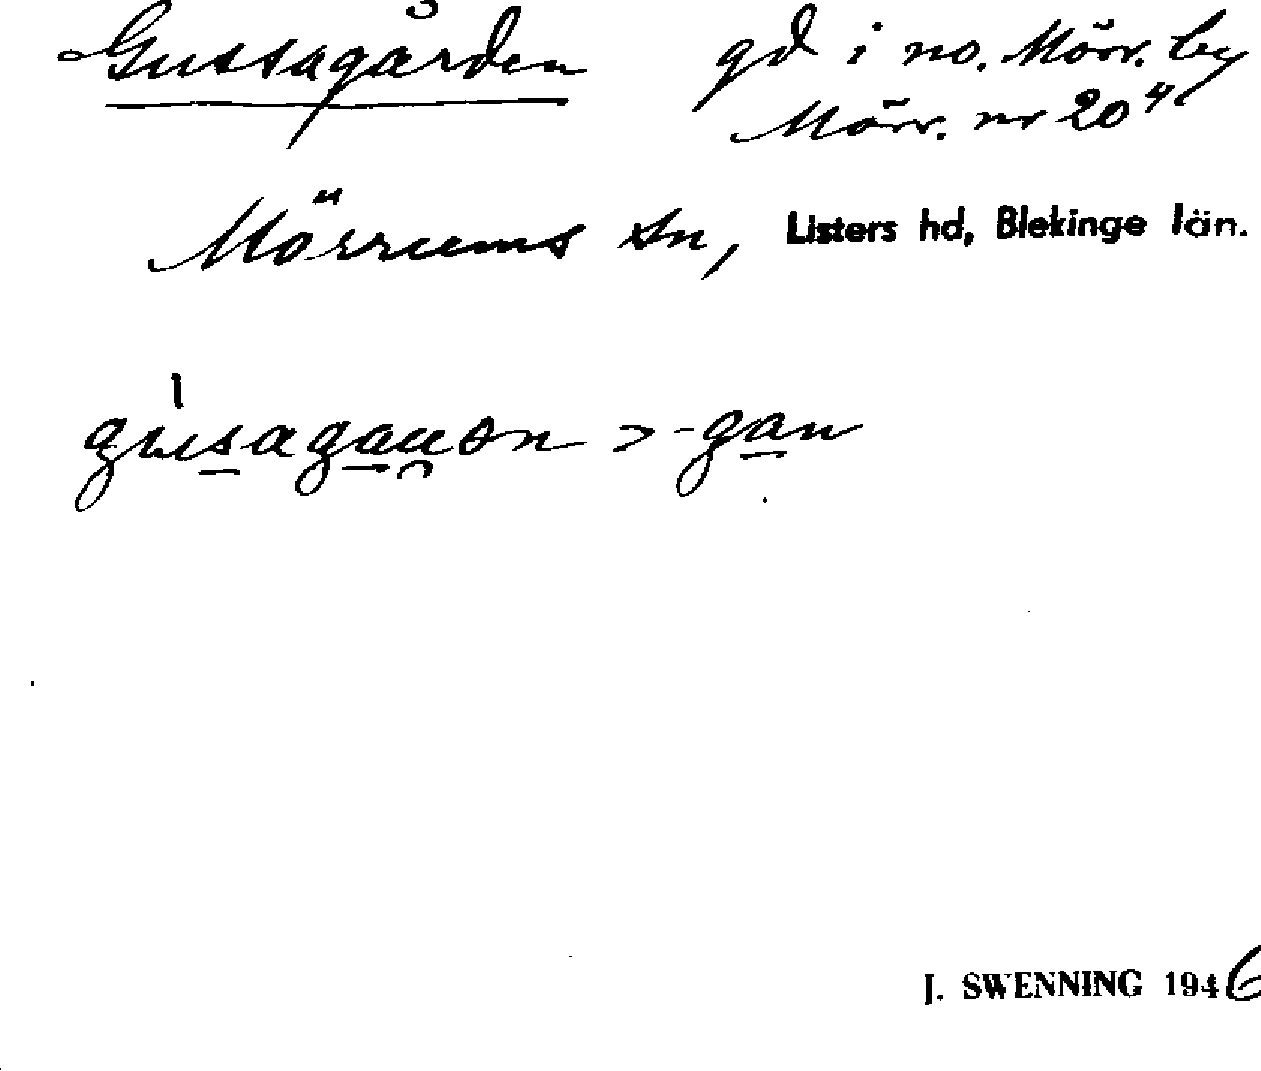 Gussagården gd i no. Mörr. by
Mörr. nr 20⁴
Mörrums sn, Listers hd, Blekinge län.
gusagauən > -gan
J. SWENNING 1946